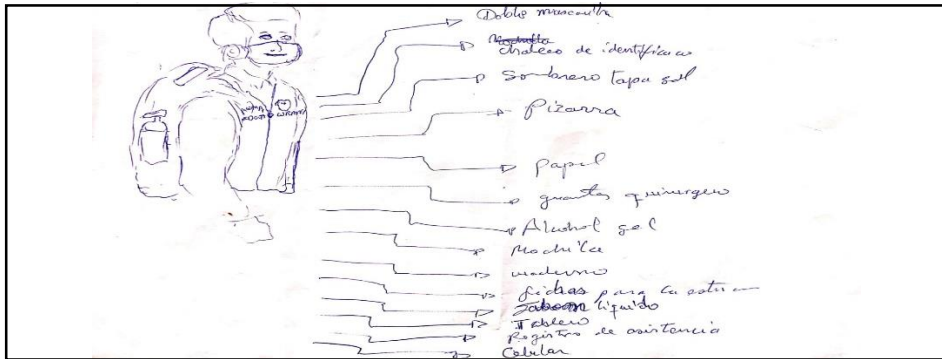 Doble mascarilla
Mochila
chaleco de identificaco
Sombrero tapa sol
Pizarra
Papel
guantes quirurgeco
Alcohol gel
Mochila
fichas para la
Jaboon liquido
Tablero
Registros de asistencia
Celular